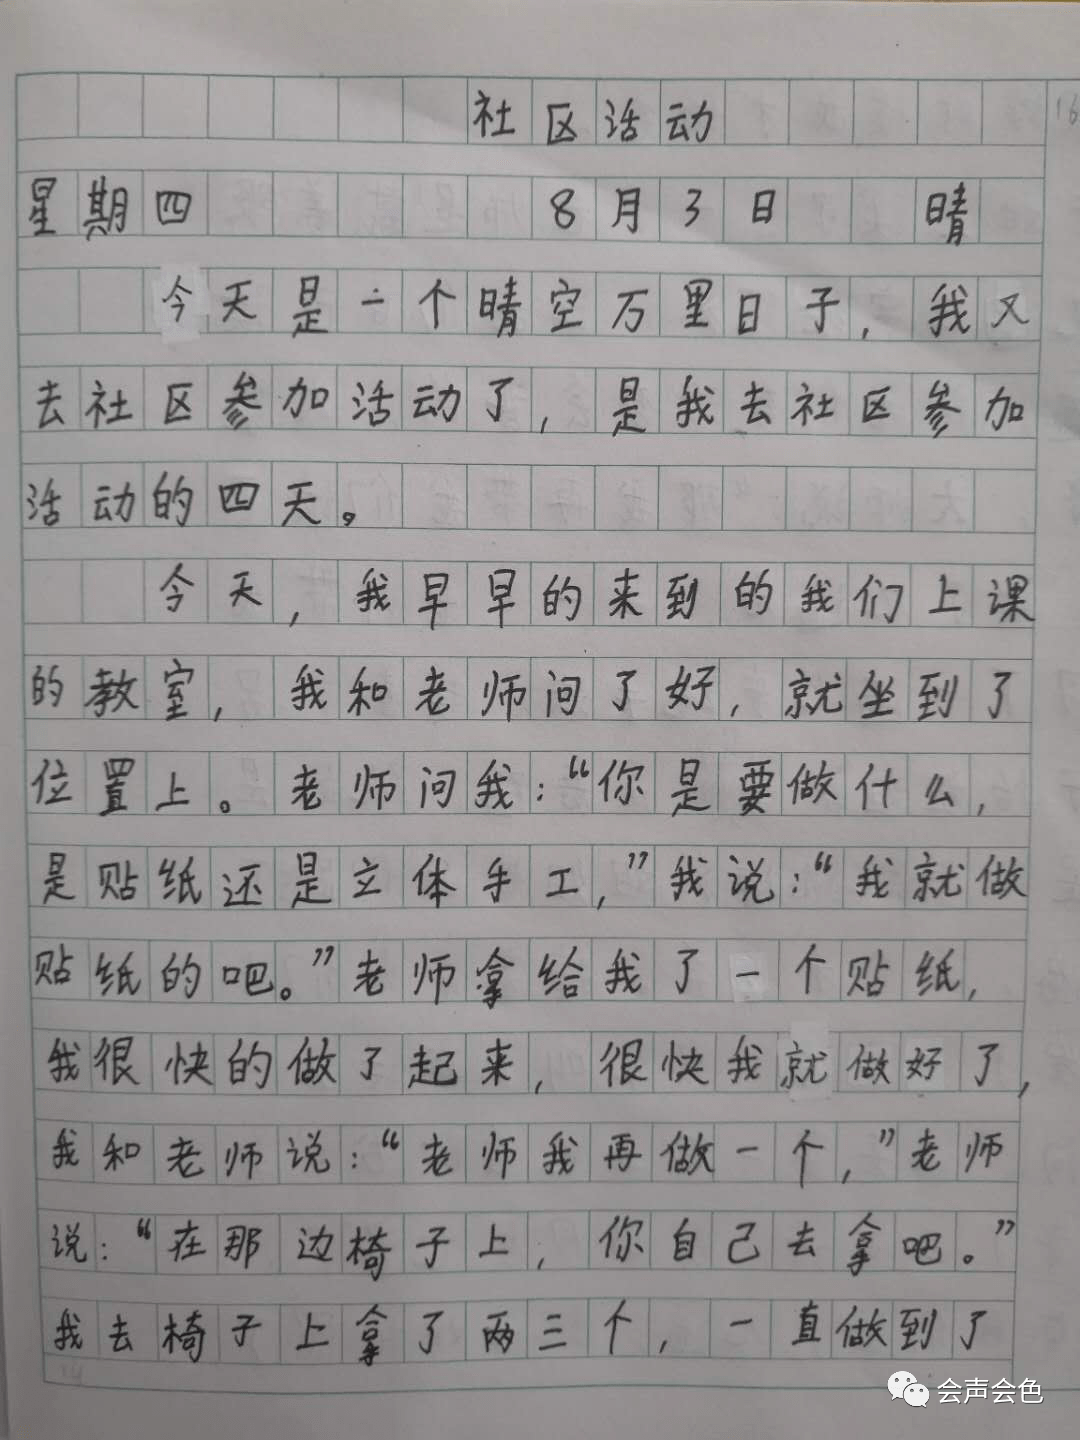 社区活动
星期四 8月3日 晴
今天是一个晴空万里日子，我又
去社区参加活动了，是我去社区参加
活动的四天。
今天，我早早的来到的我们上课
的教室，我和老师问了好，就坐到了
位置上。老师问我：“你是要做什么，
是贴纸还是立体手工，”我说：“我就做
贴纸的吧。”老师拿给我了一个贴纸，
我很快的做了起来，很快我就做好了，
我和老师说：“老师我再做一个，”老师
说：“在那边椅子上，你自己去拿吧。”
我去椅子上拿了两三个，一直做到了
会声会色